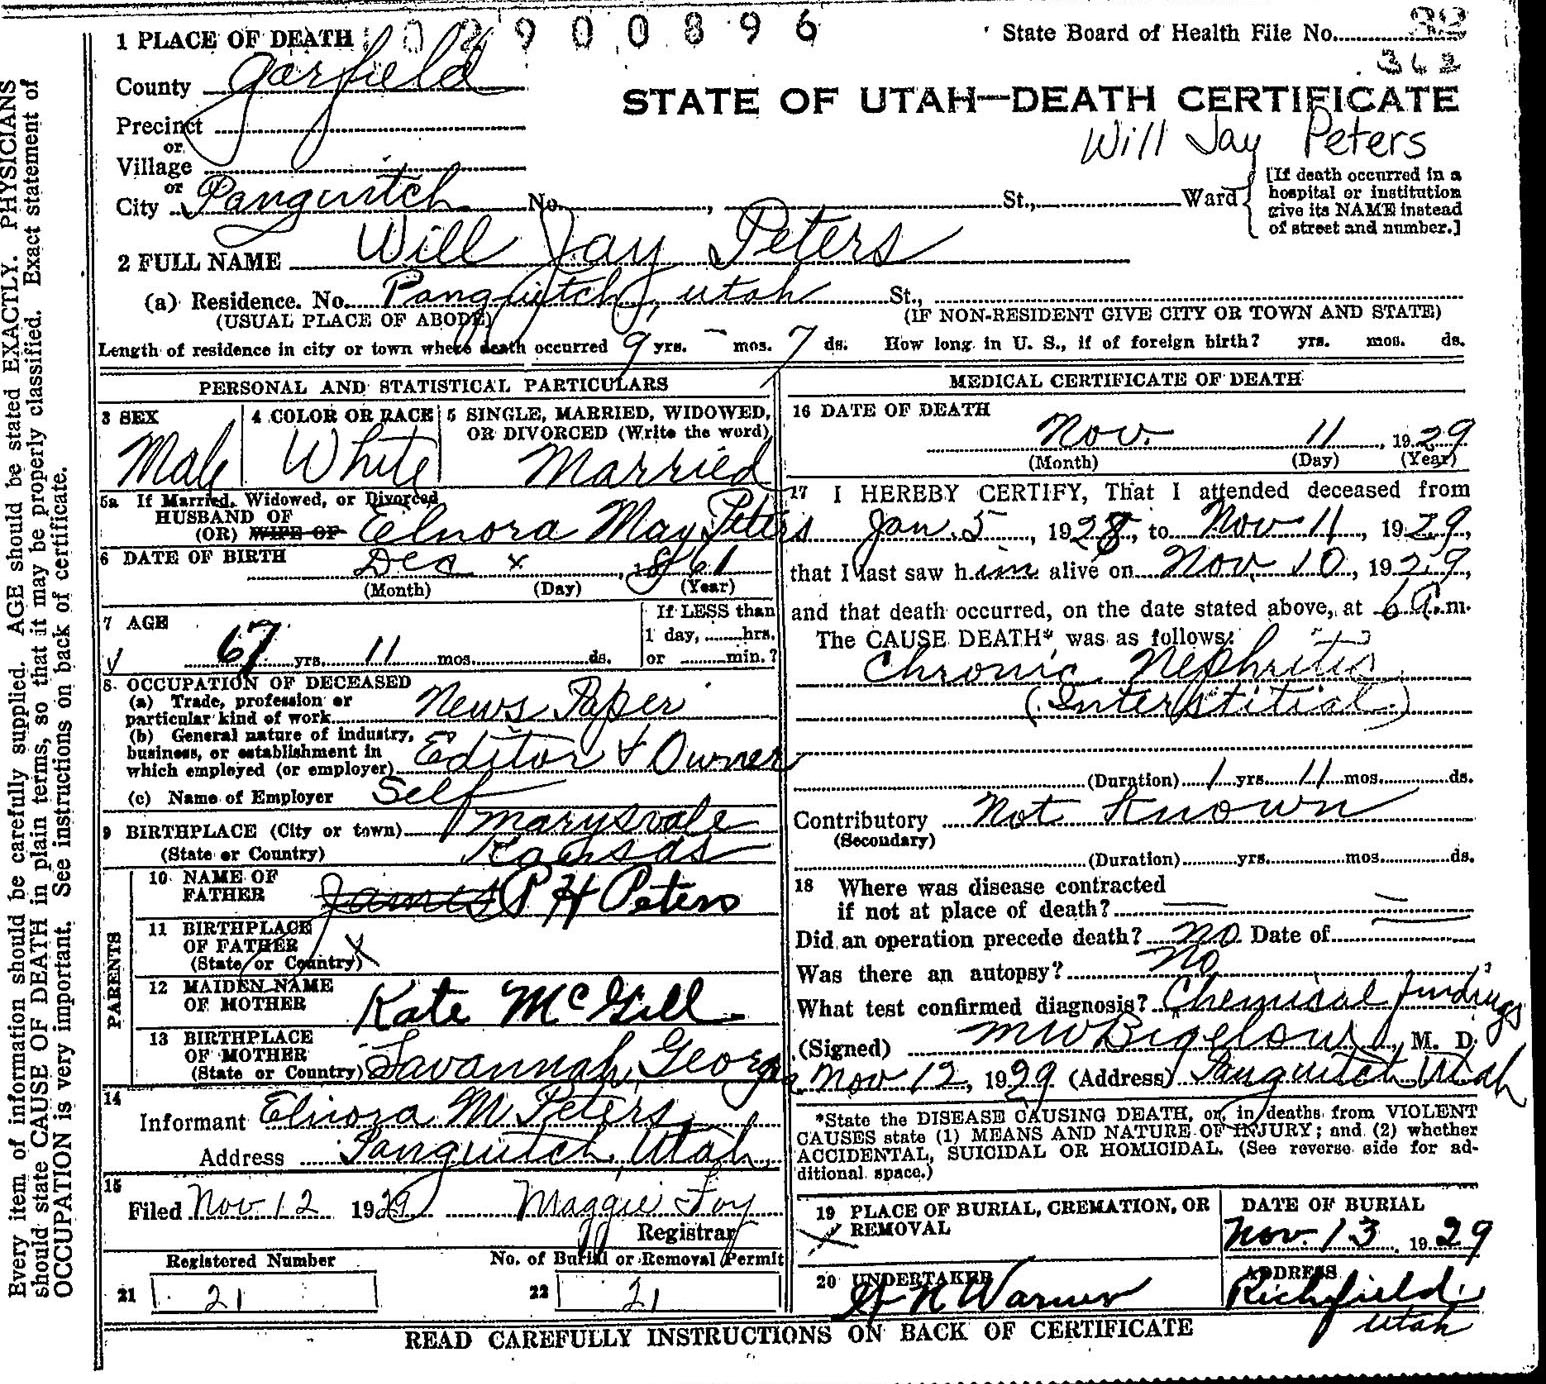 Every item of information should be carefully supplied. AGE should be stated EXACTLY. PHYSICIANS
should state CAUSE OF DEATH in plain terms, so that it may be properly classified. Exact statement of
OCCUPATION is very important. See instructions on back of certificate.
1 PLACE OF DEATH
State Board of Health File No. 32
362
County Garfield
STATE OF UTAH—DEATH CERTIFICATE
Precinct
or
Will Jay Peters
Village
or
City Panguitch No. , St., Ward
[If death occurred in a
hospital or institution
give its NAME instead
of street and number.]
2 FULL NAME Will Jay Peters
(a) Residence. No. Panguitch, Utah St.,
(USUAL PLACE OF ABODE) (IF NON-RESIDENT GIVE CITY OR TOWN AND STATE)
Length of residence in city or town where death occurred 9 yrs. – mos. 7 ds. How long in U. S., if of foreign birth? yrs. mos. ds.
PERSONAL AND STATISTICAL PARTICULARS
3 SEX
Male
4 COLOR OR RACE
White
5 SINGLE, MARRIED, WIDOWED,
OR DIVORCED (Write the word)
Married
5a If Married, Widowed, or Divorced
HUSBAND OF
(OR) WIFE OF Elnora May Peters
6 DATE OF BIRTH Dec x , 1861
(Month) (Day) (Year)
7 AGE
67 yrs. 11 mos. ds.
If LESS than
1 day, hrs.
or min.?
8. OCCUPATION OF DECEASED
(a) Trade, profession or
particular kind of work News Paper
(b) General nature of industry,
business, or establishment in
which employed (or employer) Editor & Owner
(c) Name of Employer Self
9 BIRTHPLACE (City or town) Marysvale
(State or Country) Kansas
PARENTS
10 NAME OF
FATHER James P H Peters
11 BIRTHPLACE
OF FATHER
(State or Country) X
12 MAIDEN NAME
OF MOTHER Kate McGill
13 BIRTHPLACE
OF MOTHER
(State or Country) Savannah, Georgia
14
Informant Elnora M Peters
Address Panguitch, Utah.
15
Filed Nov 12 1929 Maggie Foy
Registrar
Registered Number
21 21
No. of Burial or Removal Permit
22 21
MEDICAL CERTIFICATE OF DEATH
16 DATE OF DEATH
Nov. 11, 1929
(Month) (Day) (Year)
17 I HEREBY CERTIFY, That I attended deceased from
Jan. 5, 1928, to Nov 11, 1929,
that I last saw him alive on Nov. 10, 1929,
and that death occurred, on the date stated above, at 6 A.m.
The CAUSE DEATH* was as follows:
Chronic Nephritis
(Interstitial)
(Duration) 1 yrs. 11 mos. ds.
Contributory Not Known
(Secondary)
(Duration) yrs. mos. ds.
18 Where was disease contracted
if not at place of death?
Did an operation precede death? No. Date of
Was there an autopsy? No
What test confirmed diagnosis? Chemical findings
(Signed) M W Bigelow, M. D.
Nov 12, 1929 (Address) Panguitch Utah
*State the DISEASE CAUSING DEATH, or, in deaths from VIOLENT
CAUSES state (1) MEANS AND NATURE OF INJURY; and (2) whether
ACCIDENTAL, SUICIDAL OR HOMICIDAL. (See reverse side for ad-
ditional space.)
19 PLACE OF BURIAL, CREMATION, OR
REMOVAL
X
DATE OF BURIAL
Nov. 13, 1929
20 UNDERTAKER
N Warner
ADDRESS
Richfield.
Utah
READ CAREFULLY INSTRUCTIONS ON BACK OF CERTIFICATE